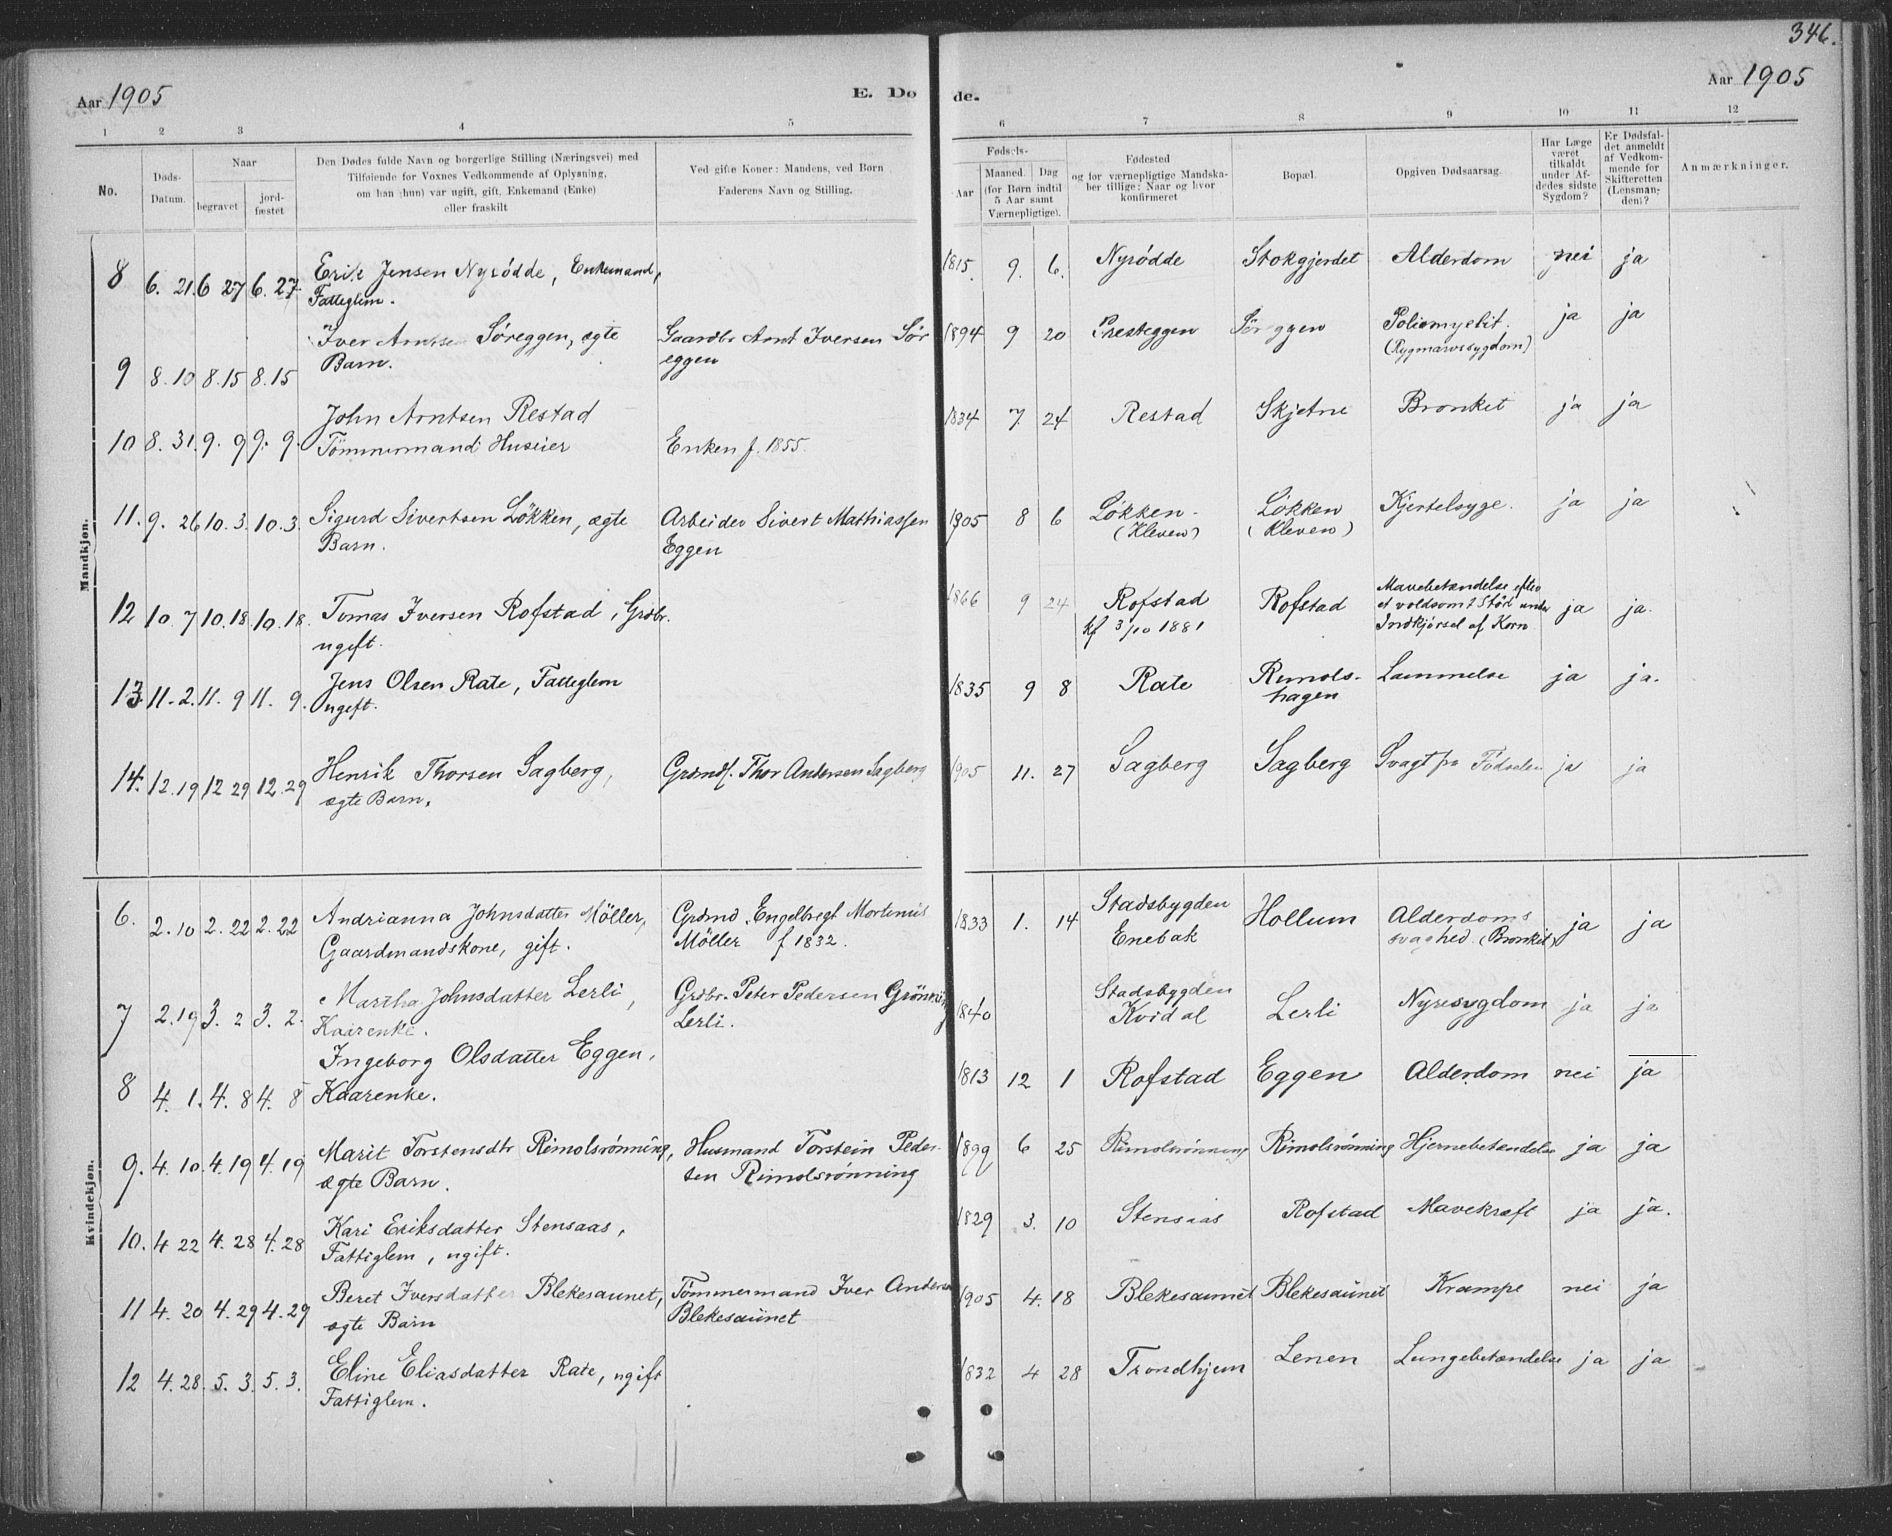 346.
Aar 1905
E. Dø
de.
Aar 1905
1 2 3 4 5 6 7 8 9 10 11 12
No.
Døds-
Datum.
Naar
begravet
jord-
fæstet
Den Dødes fulde Navn og borgerlige Stilling (Næringsvei) med
Tilføiende for Voxnes Vedkommende af Oplysning,
om han (hun) var ugift, gift, Enkemand (Enke)
eller fraskilt
Ved gifte Koner: Mandens, ved Børn
Faderens Navn og Stilling.
Fødsels-
Aar
Maaned.
Dag
(for Børn indtil
5 Aar samt
Værnepligtige).
Fødested
og for værnepligtige Mandska-
ber tillige: Naar og hvor
konfirmeret
Bopæl.
Opgiven Dødsaarsag.
Har Læge
været
tilkaldt
under Af-
dødes sidste
Sygdom?
Er Dødsfal-
det anmeldt
af Vedkom-
mende for
Skifteretten
(Lensman-
den)?
Anmærkninger.
Mandkjøn.
8 6. 21. 6 27 6. 27. Erik Jensen Nyrödde, Enkemand,
Fattiglem.
1815. 9. 6. Nyrödde Stokgjerdet Alderdom nei ja
9 8. 10 8. 15 8. 15 Iver Arntsen Söreggen, ægte
Barn.
Gaardbr Arnt Iversen Sör
eggen
1894 9 20 Presteggen Söreggen Poliomyelit.
(Rygmarvssygdom)
ja ja
10 8. 31. 9. 9 9. 9. John Arntsen Restad
Tömmermand Huseier
Enken f. 1855.
1834 7. 24 Restad Skjetne Bronkit ja ja
11. 9. 26 10. 3. 10. 3. Sigurd Sivertsen Lökken, ægte
Barn.
Arbeider Sivert Mathiassen
Eggen
1905 8 6 Lökken-
(Kleven)
Lökken
(Kleven)
Kjertelsyge. ja ja
12 10. 7 10. 18. 10. 18. Tomas Iversen Rofstad, Grdbr.
ugift.
1866 9 24 Rofstad
kf 3/10 1881
Rofstad
Mavebetændelse efter
et voldsomt Stöd under
Indkjörsel af Korn
ja ja.
13 11. 2. 11. 9 11. 9. Jens Olsen Rate, Fattiglem
ugift.
1835 9 8 Rate Rimols-
hagen
Lammelse ja ja.
14. 12. 19 12 29 12. 29 Henrik Thorsen Sagberg,
ægte Barn.
Grdmd. Thor Andersen Sagberg
1905 11. 27 Sagberg Sagberg Svagt fra Födselen ja ja
Kvindekjøn.
6. 2. 10 2. 22 2. 22 Andrianna Johnsdatter Möller,
Gaardmandskone, gift.
Grdmd. Engelbregt Mortinus
Möller f 1832.
1833 1. 14 Stadsbygden
Enebak
Hollum
Alderdoms
svaghed (Bronkit)
ja ja
7 2. 19 3. 2 3. 2. Martha Johnsdatter Lerli,
Kaarenke.
Grdbr. Peter Pedersen
Lerli.
1840 Stadsbygden
Kvidal
Lerli Nyresygdom ja ja
8 4. 1. 4. 8 4. 8 Ingeborg Olsdatter Eggen,
Kaarenke.
1813 12 1 Rofstad Eggen Alderdom nei ja
9. 4. 10. 4. 19 4. 19 Marit Torstensdtr Rimolsrönning,
ægte Barn.
Husmand Torstein Peder-
sen Rimolsrönning
1899 6 25 Rimolsrönning Rimolsrönning Hjernebetændelse ja ja
10. 4 22 4. 28 4. 28 Kari Eriksdatter Stensaas,
Fattiglem, ugift.
1829 3. 10 Stensaas Rofstad Mavekræft ja ja.
11 4. 20 4. 29 4. 29 Beret Iversdatter Blekesaunet,
ægte Barn
Tömmermand Iver Anders
Blekesaunet
1905 4. 18 Blekesaunet Blekesaunet Krampe nei ja
12 4. 28. 5. 3. 5. 3. Eline Eliasdatter Rate, ugift
Fattiglem.
1832 4 28 Trondhjem Lenen Lungebetændelse ja ja